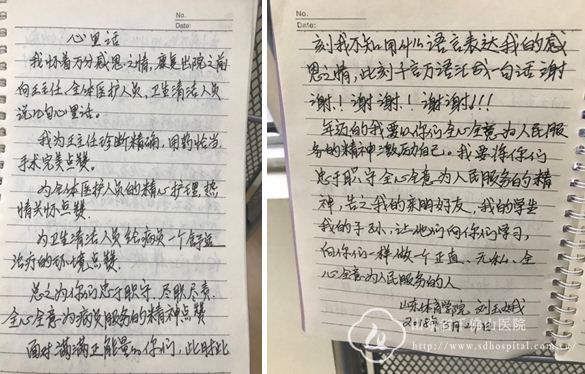 No.
Date:
心里话
我怀着万分感恩之情,康复出院之前
向王主任、全体医护人员,卫生清洁人员
说几句心里话。
我为王主任诊断精确,用药恰当
手术完美点赞。
为全体医护人员的精心护理,热
情关怀点赞.
为卫生清洁人员给病员一个舒适
治疗的环境点赞.
总之为你们忠于职守、尽职尽责.
全心全意为病员服务的精神点赞
面对满满正能量的你们,此时此
No.
Date:
刻我不知用什么语言表达我的感
恩之情,此刻千言万语汇成一句话谢
谢!谢谢!谢谢!!!
年迈的我要以你们全心全意为人民服
务的精神激励自己。我要将你们
忠于职守全心全意为人民服务的精
神,告之我的亲朋好友,我的学生
我的子孙,让他们向你们学习,
向你们一样做一个正直、无私、全
心全意为人民服务的人
山东体育学院,刘
佛山医院
www.sdhospital.com.cn